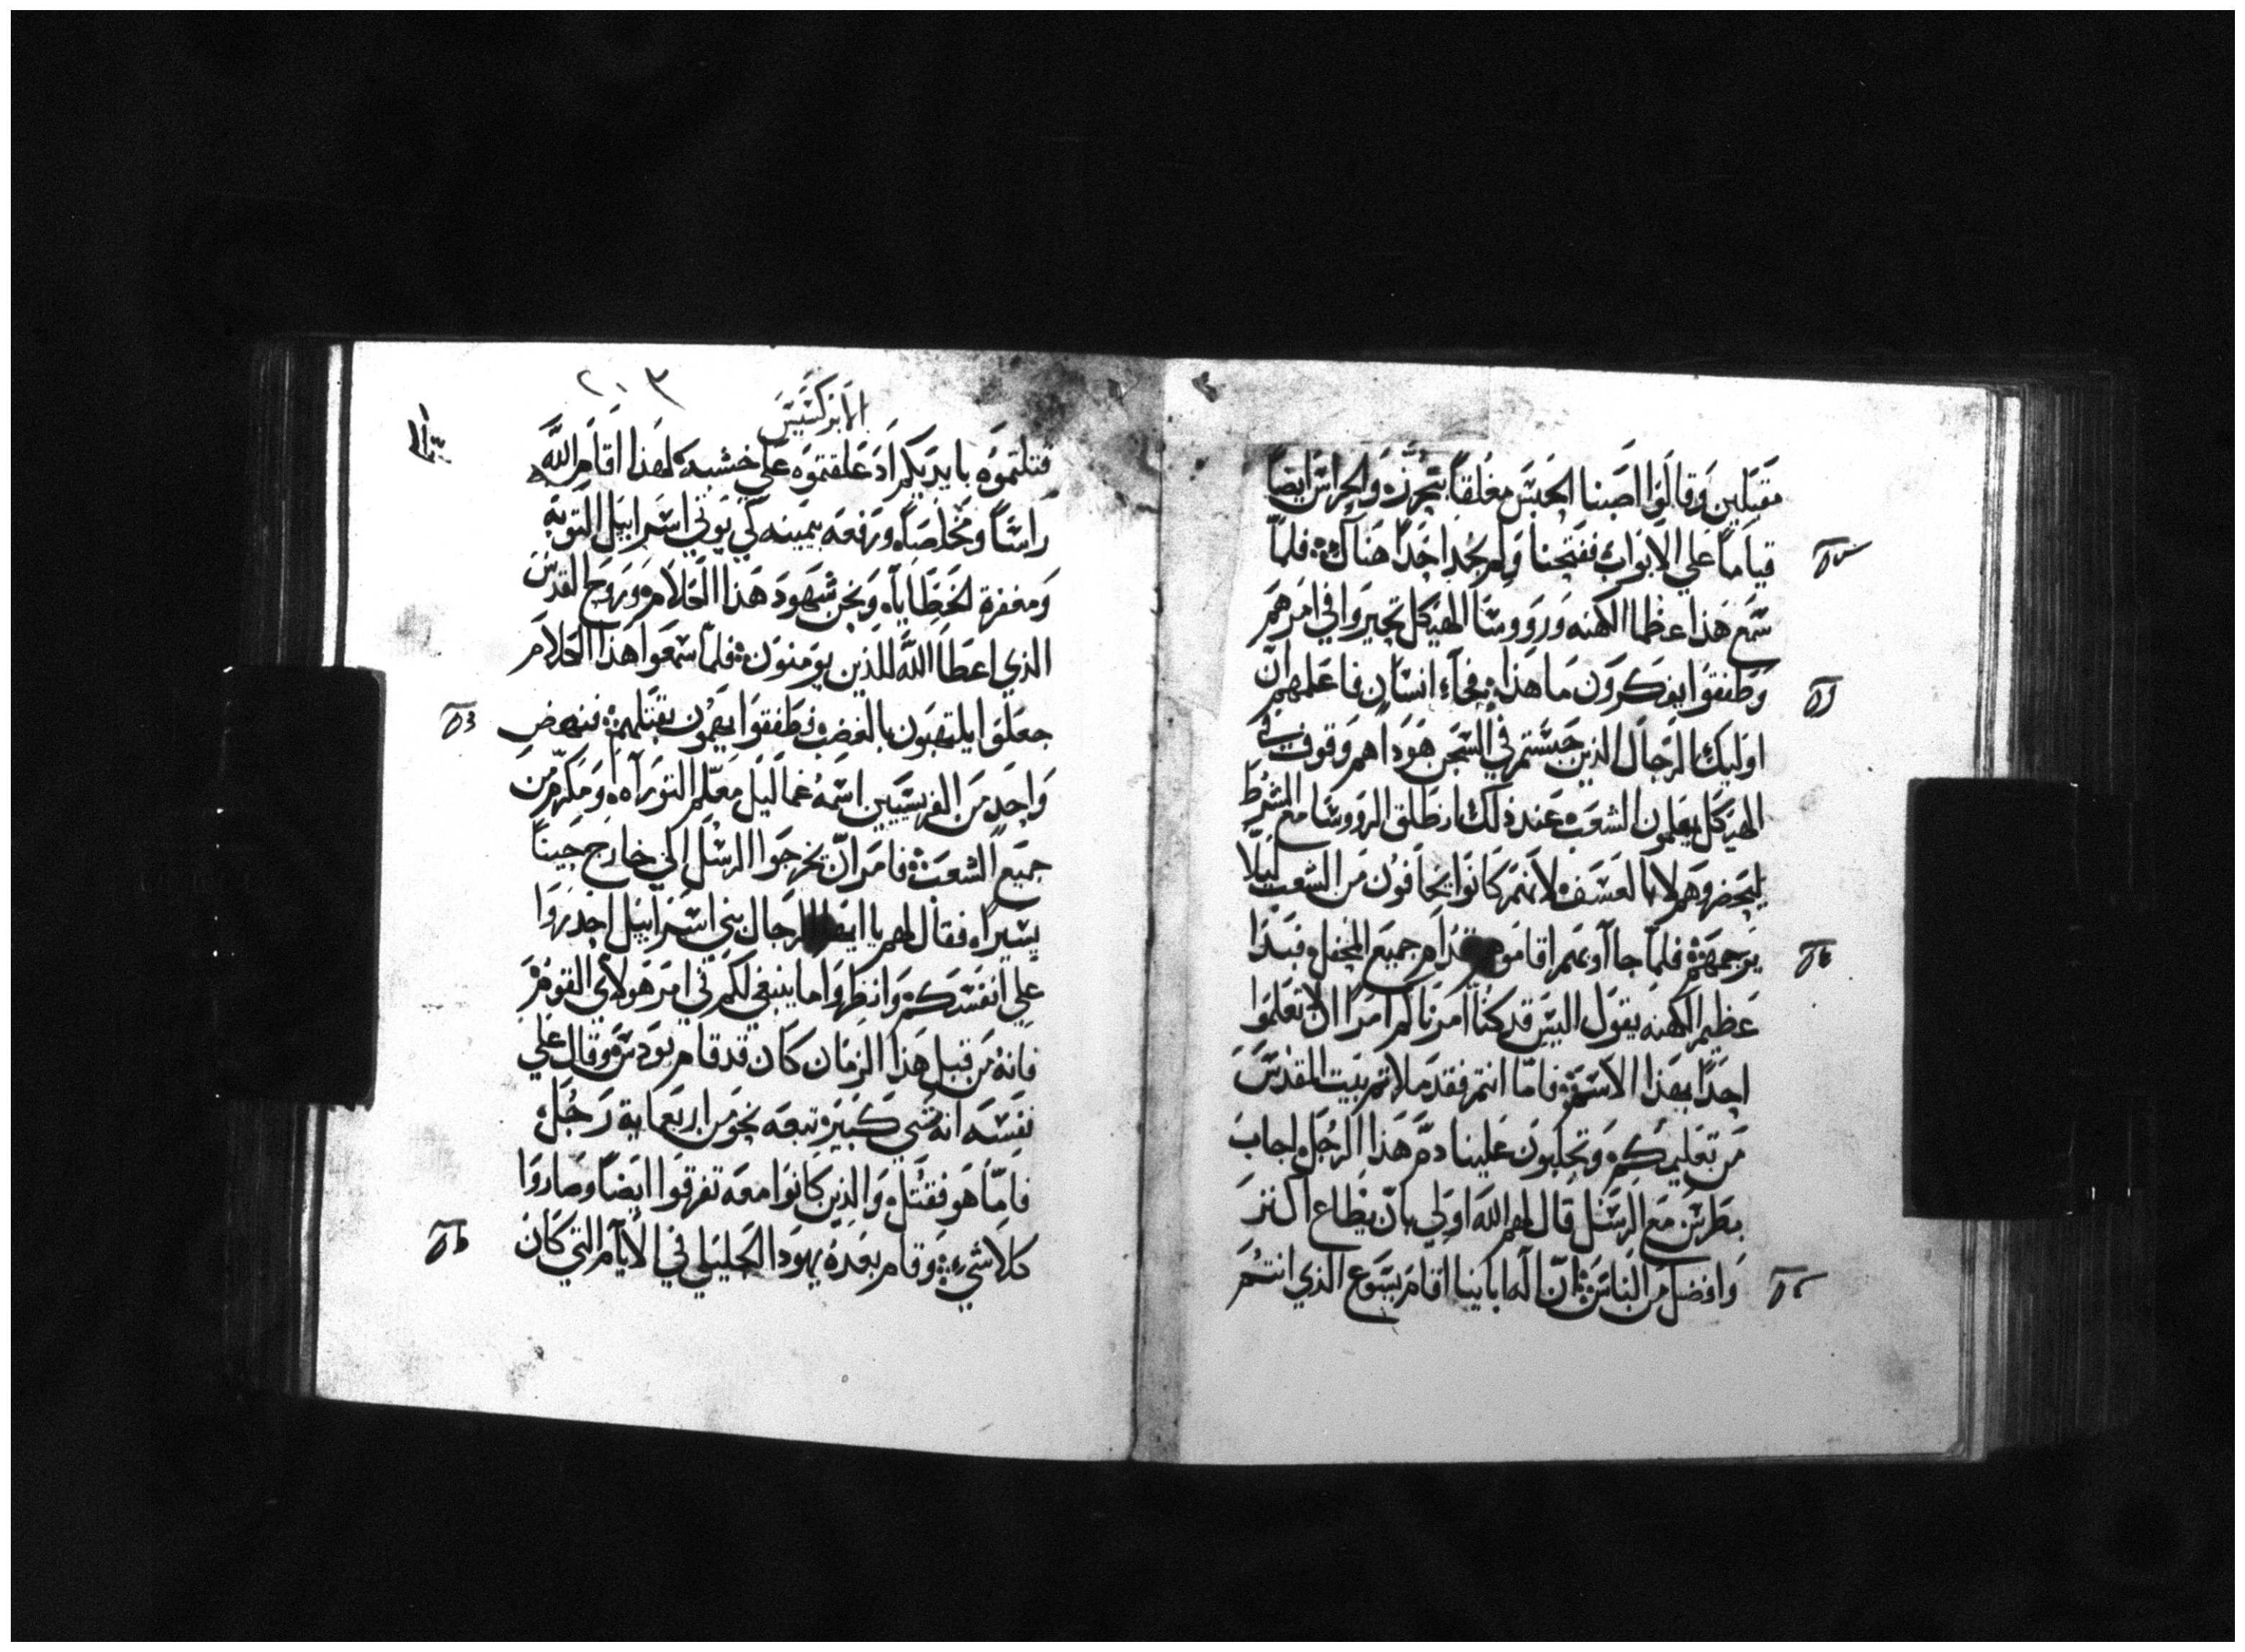 مقبلين وقالوا اصبنا الحبس مغلقاً بتحرزه والحراس ايضاً
قياماً علي الابواب ففتحنا ولم نجد احداً هناك فلما
سمع هذا عظما الكهنه ورووسا الهيكل تحيروا في امرهم
وطفقوا يفكرون ما هذا فجآء انسان فاعلمهم ان
اوليك الرجال الذين حبستم في السجن هودا هم وقوف في
الهيكل يعلمون الشعب عند ذلك انطلق الرووسا مع الشرط
ليحضروهم لا بالعسف لانهم كانوا يخافون من الشعب ليلا
يرجمهم فلما جاآوا بهم اقاموهم قدام جميع المحفل فبدا
عظيم الكهنه يقول اليس قد كنا امرناكم امرا الا تعلموا
احداً بهذا الاسم فاما انتم فقد ملاتم بيت المقدس
من تعليمكم وتجلبون علينا دم هذا الرجل اجاب
بطرس مع الرسل قال لهم الله اولي بان يطاع اكثر
وافضل من الناس ان اله اباينا اقام يسوع الذي انتم
٢٠٣
الابركسيس
قتلتموه بايديكم اذ علقتموه علي خشبه لهذا اقام الله
راسًا ومخلصاً ورفعه بيمينه كي يوتي اسراييل التوبه
ومغفرة الخطايا ونحن شهود هذا الكلام وروح القدس
الذي اعطا الله للذين يومنون فلما سمعوا هذا الكلام
جعلوا يلتهبون بالغضب وطفقوا يهمون بقتلهم فنهض
واحد من الفريسيين اسمه غمالييل معلم التوراه ومكرم من
جميع الشعب فامر ان يخرجوا الرسل الي خارج حيناً
يسيراً فقال لهم يا ايها الرجال بني اسراييل احدروا
علي انفسكم وانظروا ما ينبغي لكم في امر هولاي القوم
فانه من قبل هذا الزمان كان قد قام تودس وقال علي
نفسه انه شي كبير تبعه نحو من اربعماية رجل
فاما هو فقتل والذين كانوا معه تفرقوا ايضاً وصاروا
كلاشيء وقام بعده يهودا الجليلي في الايام التي كان